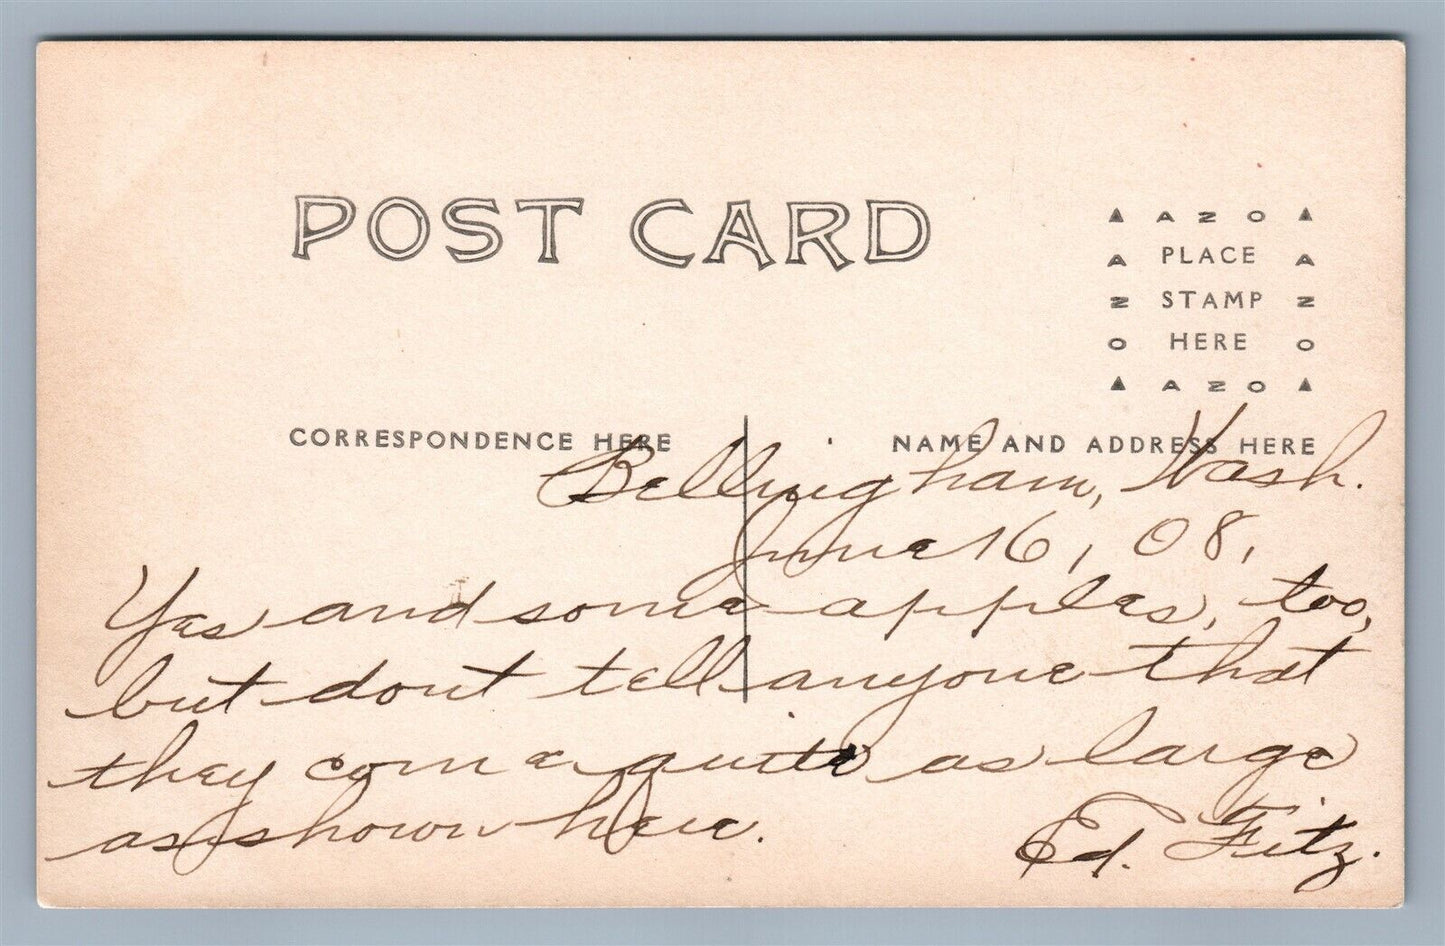 POST CARD
▲ AZO ▲
A PLACE A
Z STAMP Z
O HERE O
▲ AZO ▲
CORRESPONDENCE HERE
NAME AND ADDRESS HERE
Bellingham, Wash.
June 16, 08,
Yes and some apples, too,
but dont tell anyone that
they come quite as large
as shown here.
Ed. Fitz.